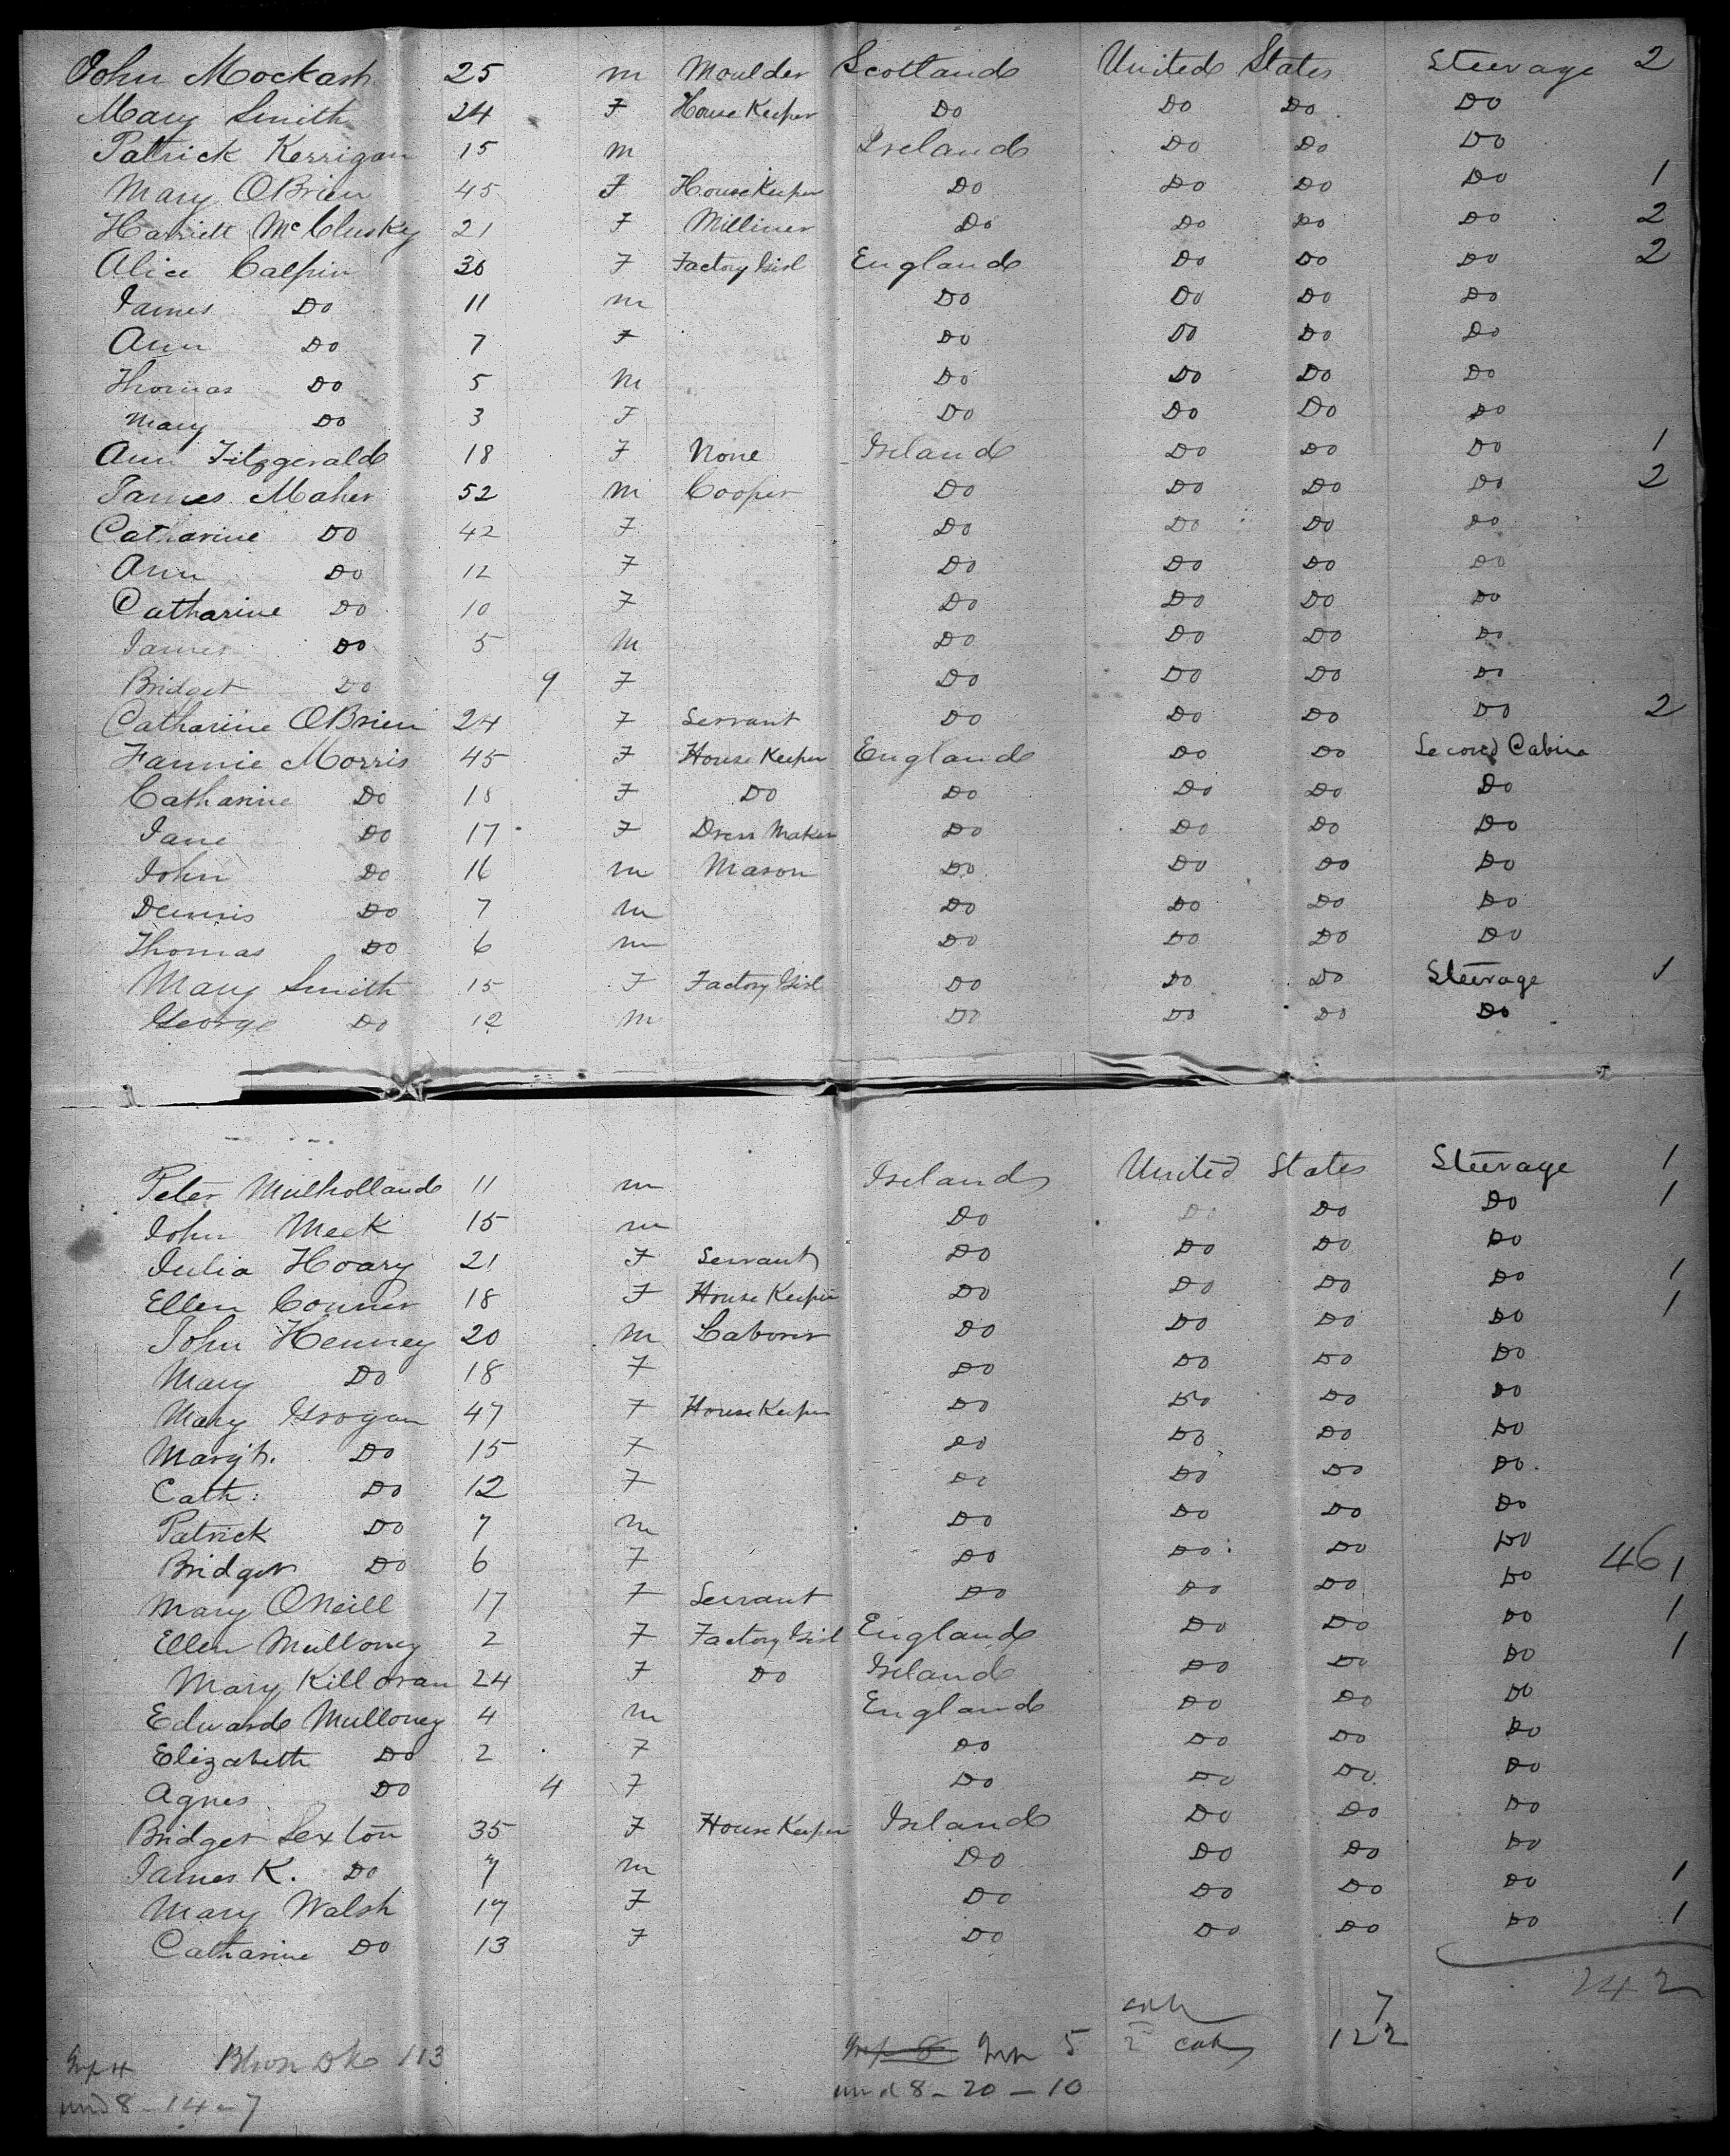 John Mockash 25 m Moulder Scotland United States Steerage 2
Mary Smith 24 F House Keeper Do Do Do Do
Patrick Kerrigan 15 m Ireland Do Do Do
Mary OBrien 45 F House Keeper Do Do Do Do 1
Harriett McClusky 21 F Milliner Do Do Do Do 2
Alice Calpin 30 F Factory Girl England Do Do Do 2
James Do 11 m Do Do Do Do
Ann Do 7 F Do Do Do Do
Thomas Do 5 m Do Do Do Do
Mary Do 3 F Do Do Do Do
Ann Fitzgerald 18 F None Ireland Do Do Do 1
James Maher 52 m Cooper Do Do Do Do 2
Catharine Do 42 F Do Do Do Do
Ann Do 12 F Do Do Do Do
Catharine Do 10 F Do Do Do Do
James Do 5 m Do Do Do Do
Bridget Do 9 F Do Do Do Do
Catharine OBrien 24 F Servant Do Do Do Do 2
Fannie Morris 45 F House Keeper England Do Do Second Cabin
Catharine Do 18 F Do Do Do Do Do
Jane Do 17 F Dress Maker Do Do Do Do
John Do 16 m Mason Do Do Do Do
Dennis Do 7 m Do Do Do Do
Thomas Do 6 m Do Do Do Do
Mary Smith 15 F Factory Girl Do Do Do Steerage 1
George Do 12 m Do Do Do Do
Peter Mulholland 11 m Ireland United States Steerage 1
John Meek 15 m Do Do Do Do 1
Julia Hoary 21 F Servant Do Do Do Do
Ellen Conner 18 F House Keeper Do Do Do Do 1
John Henney 20 m Laborer Do Do Do Do 1
Mary Do 18 F Do Do Do Do
Mary Grogan 47 F House Keeper Do Do Do Do
Margt. Do 15 F Do Do Do Do
Cath: Do 12 F Do Do Do Do
Patrick Do 7 m Do Do Do Do
Bridget Do 6 F Do Do Do Do
Mary ONeill 17 F Servant Do Do Do Do 46 1
Ellen Mulloney 2 F Factory Girl England Do Do Do 1
Mary Killoran 24 F Do Ireland Do Do Do 1
Edward Mulloney 4 m England Do Do Do
Elizabeth Do 2 F Do Do Do Do
Agnes Do 4 F Do Do Do Do
Bridget Sexton 35 F House Keeper Ireland Do Do Do
James K. Do 7 m Do Do Do Do
Mary Walsh 17 F Do Do Do Do 1
Catharine Do 13 F Do Do Do Do 1
242
7
5 2 cab 122
113
und 8 - 20 - 10
und 8 - 14 - 7